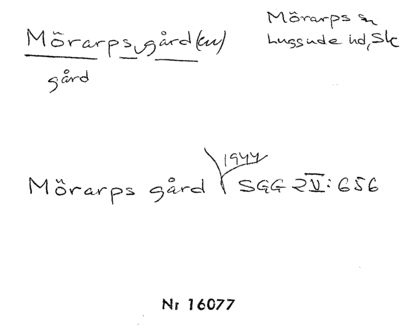 Mörarps gård (en)
Mörarps sn
Luggude hd, Sk
gård
1944
Mörarps gård SGG 2 V: 656
Nr 16077